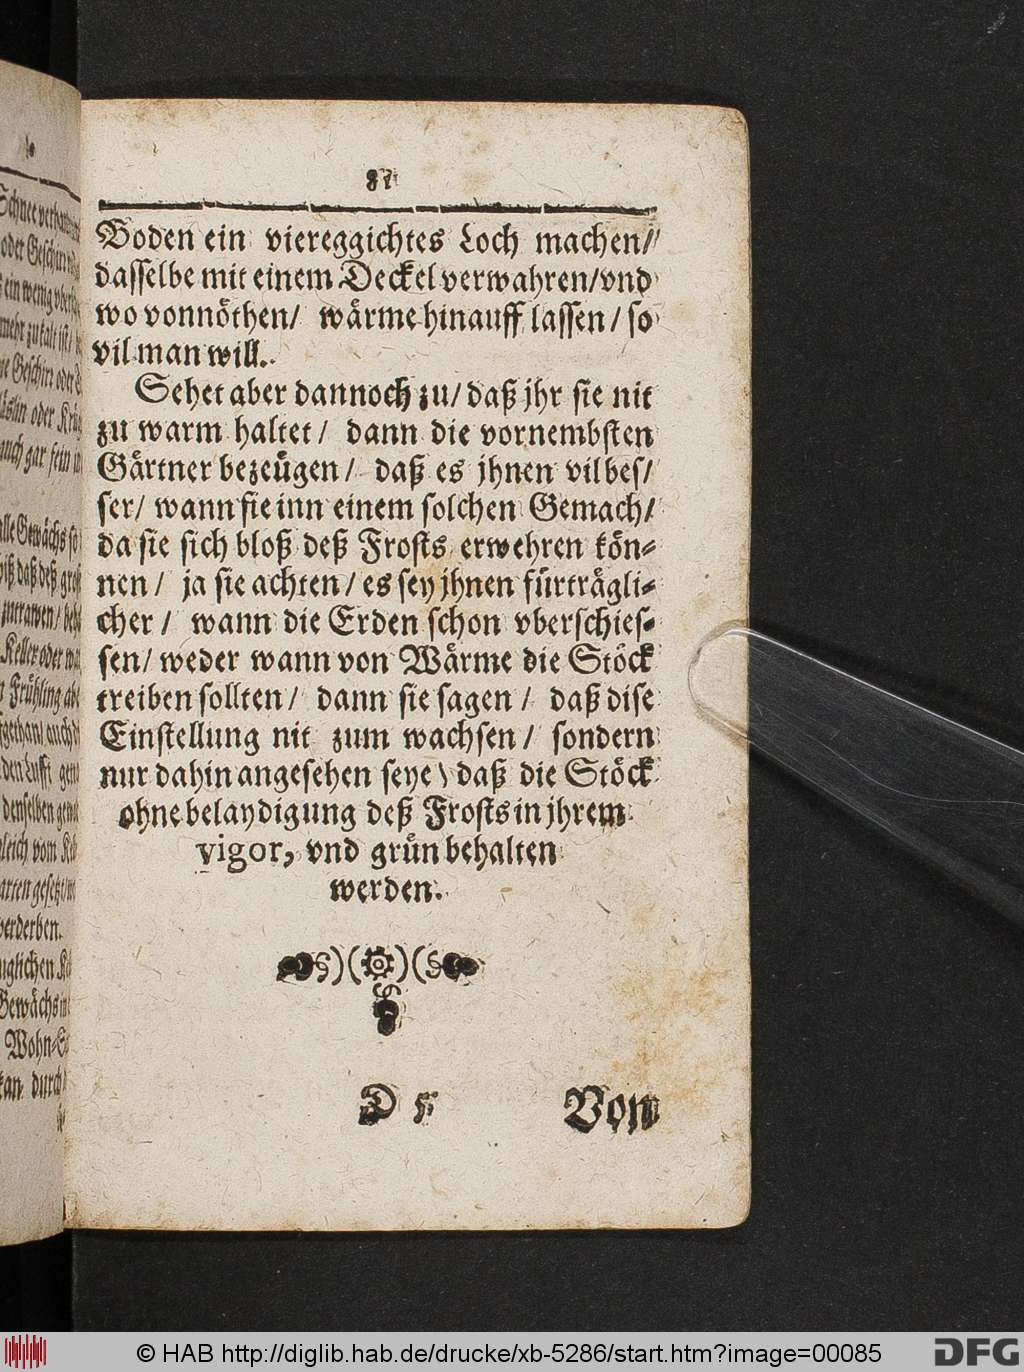 81
Boden ein viereggichtes Loch machen/
dasselbe mit einem Deckel verwahren/vnd
wo vonnöthen/ wärme hinauff lassen/ so
vil man will.
Sehet aber dannoch zu/ daß jhr sie nit
zu warm haltet/ dann die vornembsten
Gärtner bezeügen/ daß es jhnen vil bes/
ser/ wann sie inn einem solchen Gemach/
da sie sich bloß deß Frosts erwehren kön-
nen/ ja sie achten/ es sey jhnen fürträgli-
cher/ wann die Erden schon vberschies-
sen/ weder wann von Wärme die Stöck
treiben sollten/ dann sie sagen/ daß dise
Einstellung nit zum wachsen/ sondern
nur dahin angesehen seye\ daß die Stöck
ohne belaydigung deß Frosts in jhrem
vigor, vnd grün behalten
werden.
D 5 Von
© HAB http://diglib.hab.de/drucke/xb-5286/start.htm?image=00085
DFG